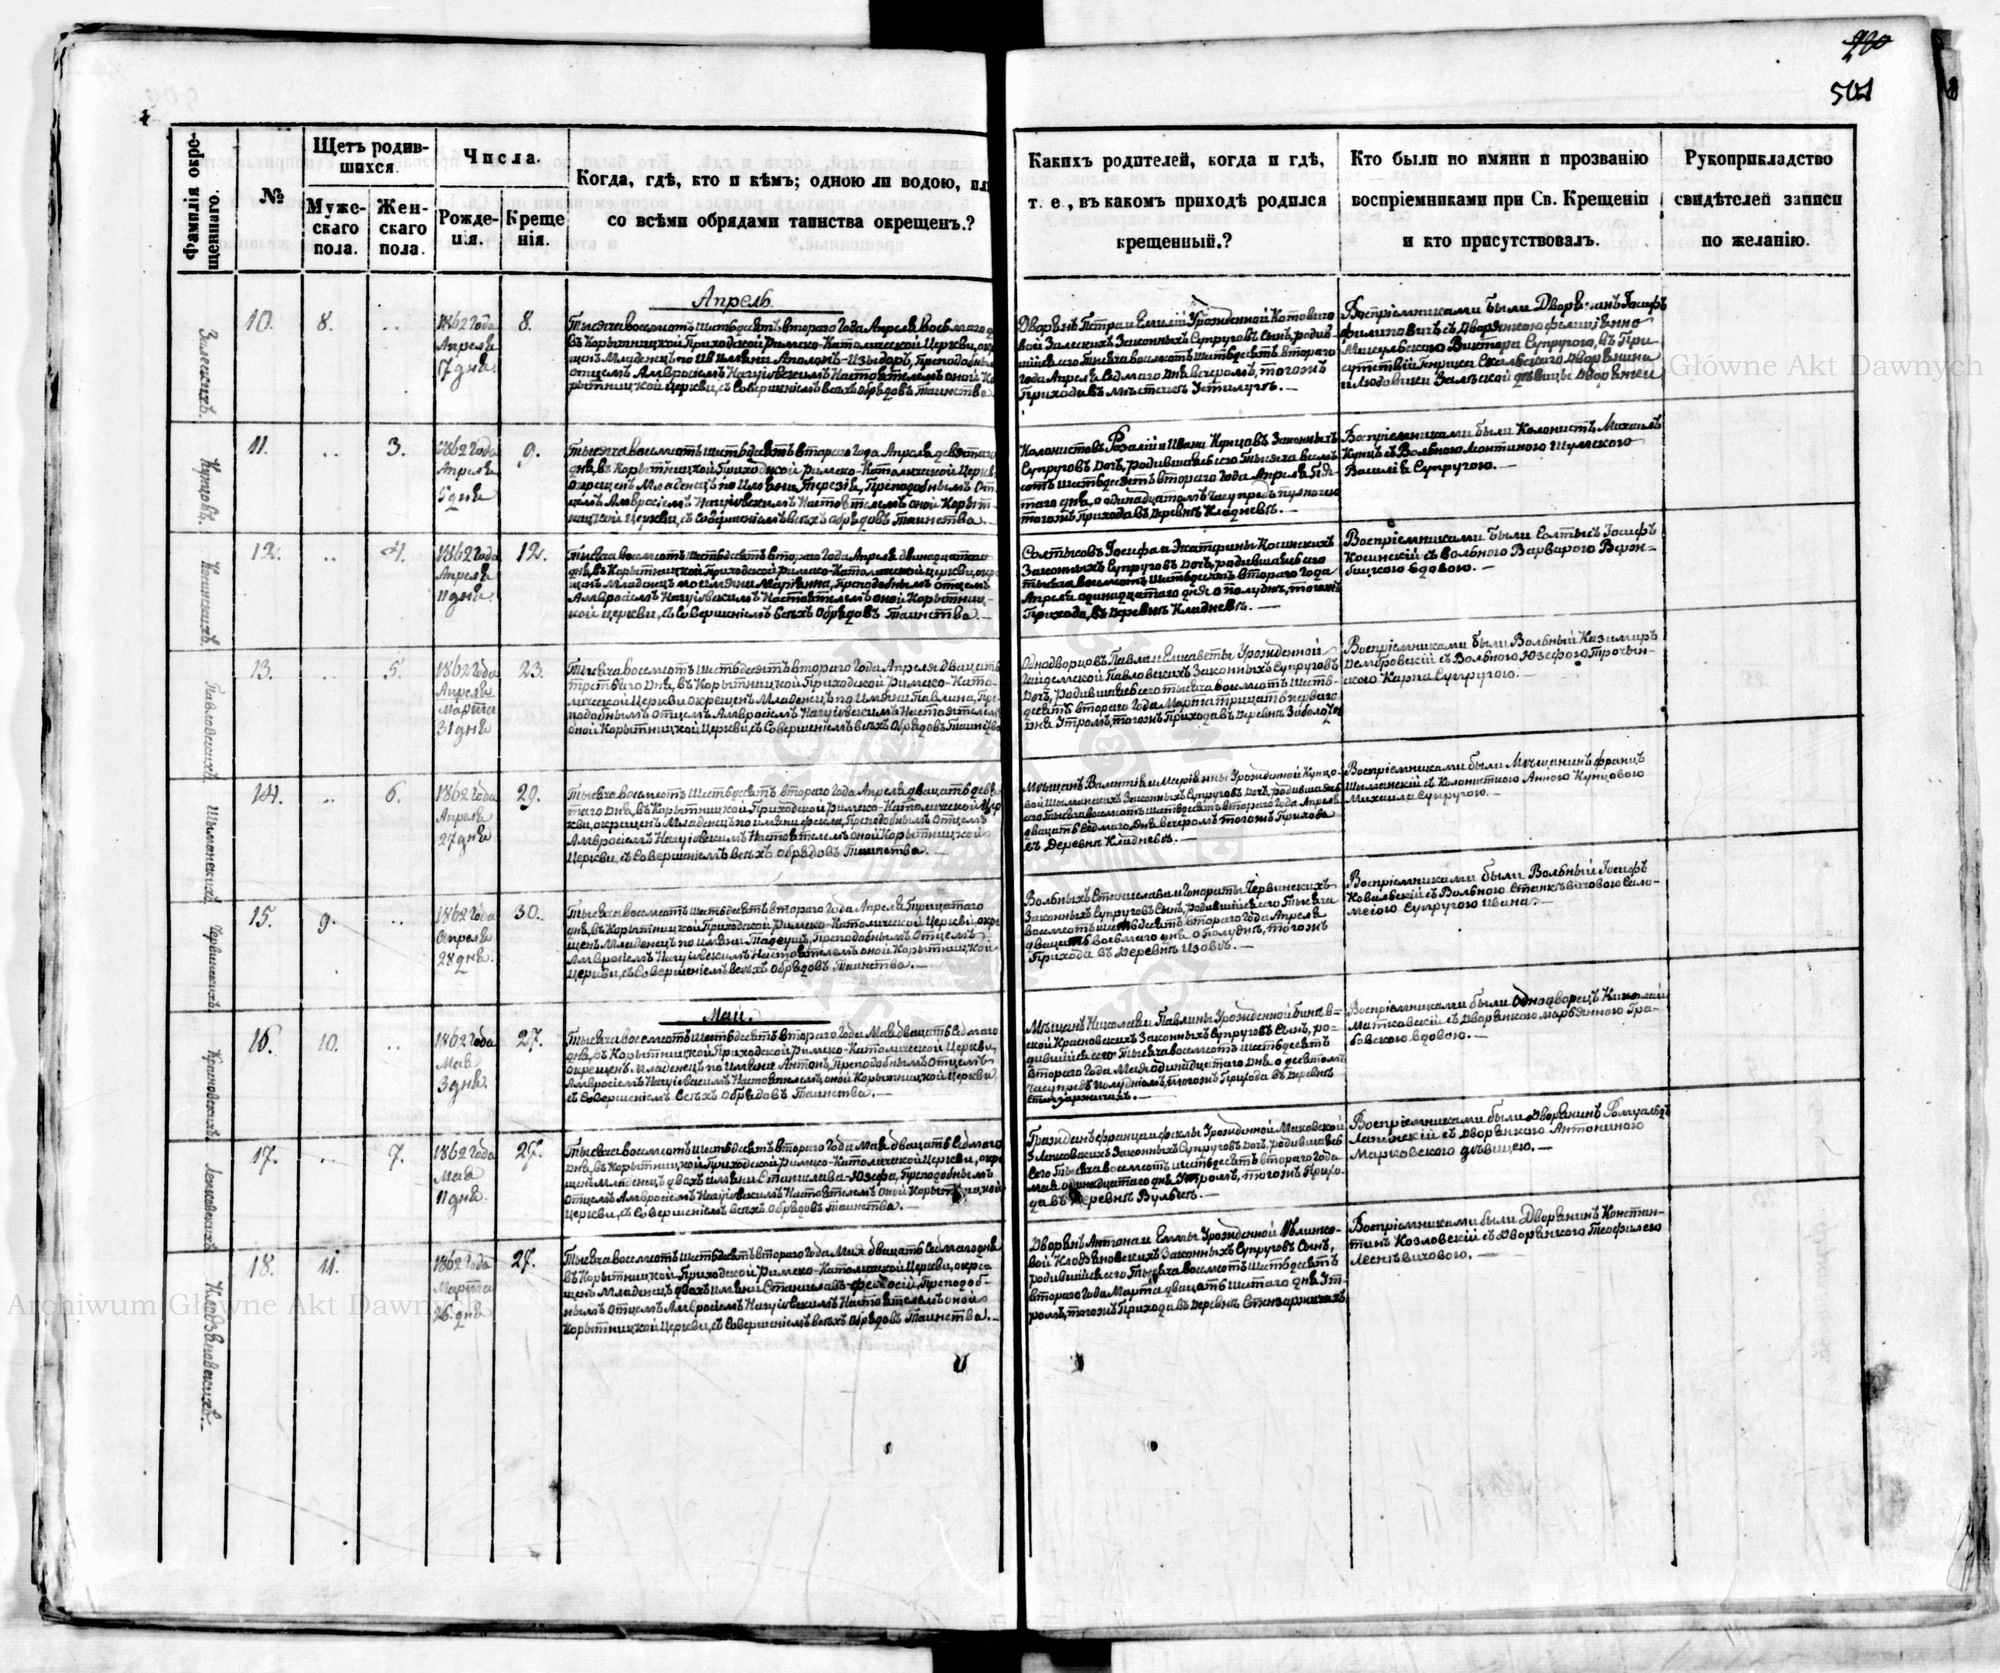 220
501
Фамилія окрещеннаго.
№
Щетъ родившихся.
Мужескаго пола.
Женскаго пола.
Числа.
Рожденія.
Крещенія.
Когда, гдѣ, кто и кѣмъ; одною ли водою, или
со всѣми обрядами таинства окрещенъ.?
Какихъ родителей, когда и гдѣ,
т. е., въ какомъ приходѣ родился
крещенный.?
Кто были по имяни и прозванію
воспріемниками при Св. Крещеніи
и кто присутствовалъ.
Рукоприкладство
свидѣтелей записи
по желанію.
Апрель
10.
8.
..
1862 года
Апреля
7 дня
8.
Тысяча восемсотъ шестьдесятъ втораго Года Апреля восьмаго
въ Корытницкой Приходской Римско-Католической Церкви, окре
щенъ Младенецъ по имяни Аполонъ-Изыдоръ, Преподобнымъ
отцемъ Амвросіемъ Нагуіовскимъ Настоятелемъ оной Ко
рытницкой Церкви, съ Совершеніемъ всѣхъ обрядовъ Таинства.
Дворянъ Петра и Емиліи Урожденной Котовичо
вой Залескихъ Законныхъ Супруговъ Сынъ, родив
шійся сего тысяча восемсотъ шестьдесятъ втораго
года Апреля Седмаго дня вечеромъ, тогожъ
Прихода въ мѣстечкѣ Устилугѣ.
Воспріемниками были Дворянинъ Іосифъ
Филиповичъ съ Дворянкою Фелиціянно
Виктора Супругою, въ При
сутствіи Генриха Скальского Дворянина
и Людовики Залѣской дѣвицы Дворянки
11.
..
3.
1862 года
Апреля
5 дня
9.
Тысяча восемсотъ шестьдесятъ втораго Года Апреля девятаго
дня, въ Корытницкой Приходской Римско-Католической Церкви
окрещенъ Младенецъ по имяни Терезія, Преподобнымъ От
цемъ Амвросіемъ Нагуіовскимъ Настоятелемъ оной Корыт
ницкой Церкви, съ Совершеніемъ всѣхъ обрядовъ Таинства.
Колонистовъ Розалія и Ивана Кунцовъ Законныхъ
Супруговъ Дочь, родившаяся сего Тысяча восем
сотъ шестьдесятъ втораго года Апреля Пя
таго дня, о одинадцатомъ часу предъ пулночю
тогожъ Прихода въ деревнѣ Кладневѣ.
Воспріемниками были Колонистъ Михаилъ
Кунцъ съ Вольною Мартиною Шумского
Василія Супругою.
12.
..
4.
1862 года
Апреля
11 дня
12.
Тысяча восемсотъ шестьдесятъ втораго Года Апреля двинадцатаго
дня, въ Корытницкой Приходской Римско-Католической Церкви, окре
щенъ Младенецъ по имяни Маріянна, Преподобнымъ отцемъ
Амвросіемъ Нагуіовскимъ Настоятелемъ оной Корытниц
кой Церкви, съ Совершеніемъ всѣхъ обрядовъ Таинства.
Солтысовъ Іосифа и Экатерины Косинскихъ
Законныхъ Супруговъ Дочь, родившаяся сего
тысяча восемсотъ шестьдесятъ втораго года
Апреля одинадцатаго дня о полуднѣ, тогожъ
Прихода, въ деревнѣ Кладневѣ.
Воспріемниками были Солтысъ Іосифъ
Косинскій съ Вольною Варварою Верж-
бицкого вдовою.
13.
..
5.
1862 года
Апреля
Марта
31 дня
23.
Тысяча восемсотъ шестьдесятъ втораго Года Апреля двацать
третьяго Дня, въ Корытницкой Приходской Римско-Като
лической Церкви окрещенъ Младенецъ по имяни Павлина, Пре
подобнымъ отцемъ Амвросіемъ Нагуіовскимъ Настоятелемъ
оной Корытницкой Церкви, съ Совершеніемъ всѣхъ Обрядовъ Таинства
Однодворцовъ Павла и Елисаветы Урожденной
Павловскихъ Законныхъ Супруговъ
Дочь, Родившаяся сего тысяча восемсотъ шесть-
десятъ втораго года Марта трицать перваго
Дня Утромъ, тогожъ Прихода въ деревнѣ
Воспріемниками были Вольный Казимиръ
Домбровскій съ Вольною Юзефою Трочин-
ского Карпа Супругою.
14.
..
6.
1862 года
Апреля
27 дня
29.
Тысяча восемсотъ шестьдесятъ втораго Года Апреля двацать девя
таго Дня, въ Корытницкой Приходской Римско-Католической Цер
кви, окрещенъ Младенецъ по имяни Фекла, Преподобнымъ Отцемъ
Амвросіемъ Нагуіовскимъ Настоятелемъ оной Корытницкой
Церкви, съ Совершеніемъ всѣхъ обрядовъ Таинства.
Мѣщанъ Валентія и Маріянны Урожденной Кунцо-
вой Шыманскихъ Законныхъ Супруговъ Дочь, родившаяся
сего тысяча восемсотъ шестьдесятъ втораго Года Апреля
двацать седмаго Дня вечеромъ тогожъ Прихода
въ Деревнѣ Кладневѣ.
Воспріемниками были Мѣщанинъ Францъ
Шыманскій съ Колонисткою Анною Кунцовою
Михаила Супругою.
15.
9.
..
1862 года
Апреля
28 дня.
30.
Тысяча восемсотъ шестьдесятъ втораго Года Апреля Трицатаго
дня, въ Корытницкой Приходской Римско-Католической Церкви, окре
щенъ Младенецъ по имяни Тадеушъ, Преподобнымъ Отцемъ
Амвросіемъ Нагуіовскимъ Настоятелемъ оной Корытницкой
Церкви, съ Совершеніемъ всѣхъ обрядовъ Таинства.
Вольныхъ Станислава и Гонораты Червинскихъ
Законныхъ Супруговъ Сынъ, родившійся сего Тысяча
восемсотъ шестьдесятъ втораго Года Апреля
двацать восьмаго дня о Полуднѣ, тогожъ
Прихода въ деревнѣ Изовѣ.
Воспріемниками были Вольный Іосифъ
Ковальскій съ Вольною Станкѣвичовою Сало-
меіою Супругою Ивана.
Май.
16.
10.
..
1862 года
Мая
3 дня.
27.
Тысяча восемсотъ шестьдесятъ втораго Года Мая двацать седмаго
дня, въ Корытницкой Приходской Римско-Католической Церкви,
окрещенъ Младенецъ по имяни Антонъ, Преподобнымъ Отцемъ
Амвросіемъ Нагуіовскимъ Настоятелемъ, оной Корытницкой Церкви,
съ Совершеніемъ всѣхъ обрядовъ Таинства.
Мѣщанъ Николая и Павлины Урожденной
ской Красновскихъ Законныхъ Супруговъ Сынъ, ро-
дившійся сего Тысяча восемсотъ шестьдесятъ
втораго года Мая одинадцатаго дня о десятомъ
часу предъ Полуднiомъ, тогожъ Прихода въ деревнѣ
Стенжаричахъ.
Воспріемниками были Однодворецъ Николай
Матковскій съ Дворянкою Марьянною Гра-
бовского вдовою.
17.
..
7.
1862 года
Мая
11 дня.
27.
Тысяча восемсотъ шестьдесятъ втораго Года Мая двацать Седмаго
Дня, въ Корытницкой Приходской Римско-Католической Церкви, окре
щенъ Младенецъ двохъ имяни Станислава-Юзефа, Преподобнымъ
Отцемъ Амвросіемъ Нагуіовскимъ Настоятелемъ оной Корытницкой
Церкви, съ Совершеніемъ всѣхъ обрядовъ Таинства.
Гражданъ Франца и Феклы Урожденной Маковской
Законныхъ Супруговъ Дочь, родившаяся
Сего Тысяча восемсотъ шестьдесятъ втораго Года
Мая одинадцатаго дня Утромъ, тогожъ Прихо-
да въ Деревнѣ Вульцѣ.
Воспріемниками были Дворянинъ Ромуальдъ
Лапинскій съ Дворянкою Антониною
Марковского дѣвицею.
18.
11.
1862 года
Марта
26 дня
27.
Тысяча восемсотъ шестьдесятъ втораго Года Мая двацать Седмаго дня
въ Корытницкой Приходской Римско-Католической Церкви, окре
щенъ Младенецъ двохъ имяни Станиславъ-Феодосій, Преподоб
нымъ отцемъ Амвросіемъ Нагуіовскимъ Настоятелемъ оной
Корытницкой Церкви, съ Совершеніемъ всѣхъ обрядовъ Таинства.
Дворянъ Антона и Еммы Урожденной
вой Клодзяновскихъ Законныхъ Супруговъ Сынъ,
родившійся сего Тысяча восемсотъ шестьдесятъ
втораго Года Марта двацать шестаго дня Ут-
ромъ, тогожъ Прихода въ деревнѣ Стенжаричахъ
Воспріемниками были Дворянинъ Констан-
тинъ Козловскій съ Дворянкою Теофилею
Залескихъ.
Кунцовъ.
Косинскихъ.
Павловскихъ
Шыманскихъ.
Червинскихъ.
Красновскихъ
Клодзяновскихъ.
Archiwum Główne Akt Dawnych
Archiwum Główne Akt Dawnych